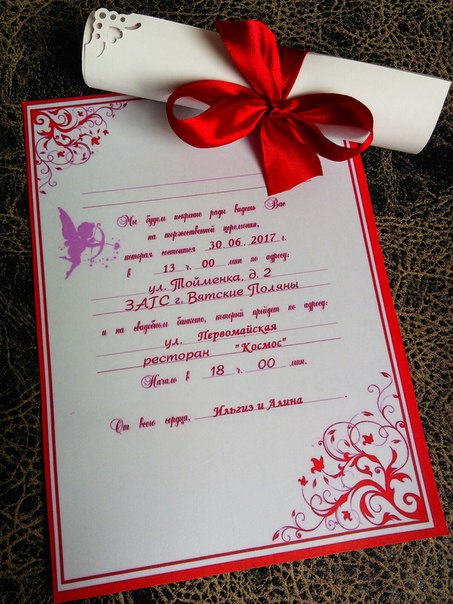 Мы будем искренне рады видеть Вас
на торжественной церемонии,
которая состоится 30.06.2017 г.
в 13 ч. 00 мин по адресу:
ул. Тойменка, д. 2
ЗАГС г. Вятские Поляны
и на свадебном банкете, который пройдет по адресу:
ул. Первомайская
ресторан "Космос"
Начало в 18 ч. 00 мин.
От всего сердца, Ильгиз и Алина.